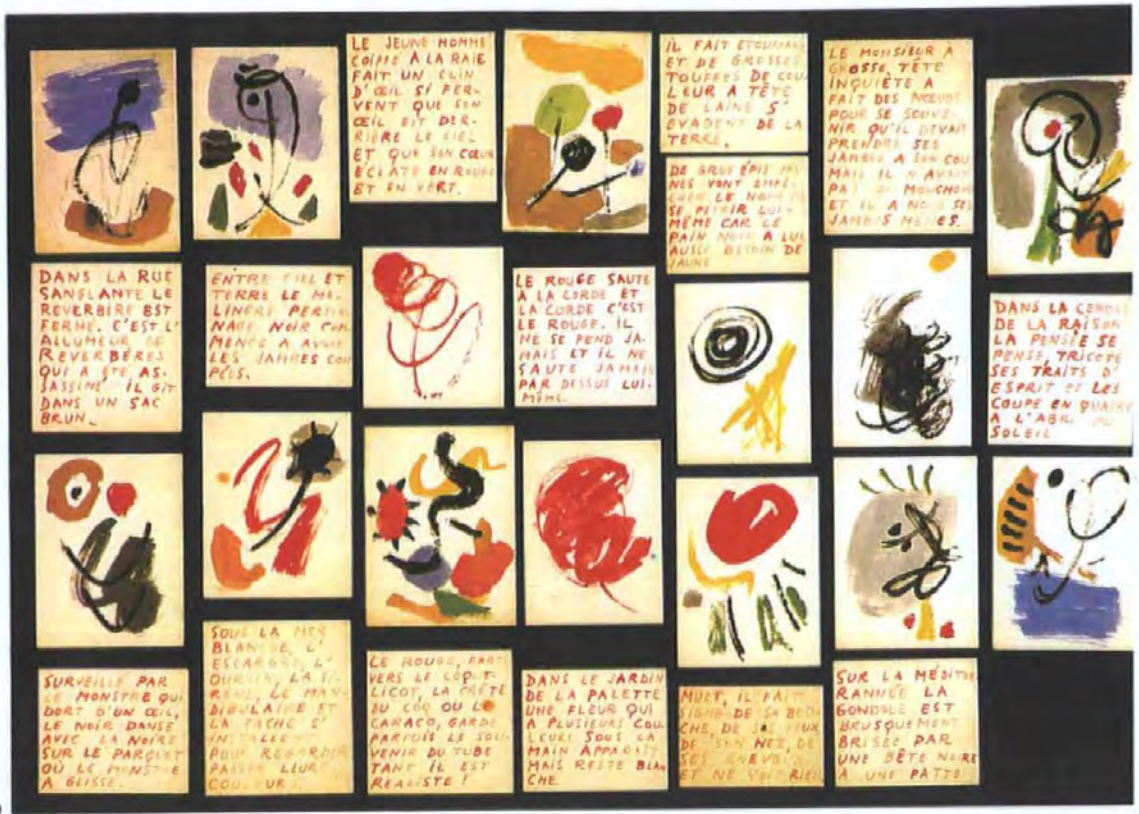 LE JEUNE HOMME
COIFFÉ À LA RAIE
FAIT UN CLIN
D'ŒIL SI FER-
VENT QUE SON
ŒIL EST DER-
RIÈRE LE CIEL
ET QUE SON CŒUR
ÉCLATE EN ROUGE
ET EN VERT.
IL FAIT
ET DE GROSSES
TOUFFES DE COU-
LEUR A TÊTE
DE LAINE S'
ÉVADENT DE LA
TERRE.
DE GROS ÉPIS JAU-
NES VONT EMPÊ-
CHER LE NOIR DE
SE PÉTRIR LUI-
MÊME CAR LE
PAIN NOIR A LUI
AUSSI BESOIN DE
JAUNE
LE MONSIEUR À
GROSSE TÊTE
INQUIÈTE A
FAIT DES NŒUDS
POUR SE SOUVE-
NIR QU'IL DEVAIT
PRENDRE SES
JAMBES A SON COU
MAIS IL N'AVAIT
PAS DE MOUCHOIR
ET IL A NOUÉ SES
JAMBES MÊMES.
DANS LA RUE
SANGLANTE LE
REVERBÈRE EST
FERMÉ. C'EST L'
ALLUMEUR DE
REVERBÈRES
QUI A ÉTÉ AS-
SASSINÉ IL GIT
DANS UN SAC
BRUN.
ENTRE CIEL ET
TERRE LE MO-
LINERO PERSON-
NAGE NOIR COM-
MENCE A AVOIR
LES JAMBES COU-
PÉES.
LE ROUGE SAUTE
A LA CORDE ET
LA CORDE C'EST
LE ROUGE. IL
NE SE PEND JA-
MAIS ET IL NE
SAUTE JAMAIS
PAR DESSUS LUI-
MÊME.
DANS LA CENDRE
DE LA RAISON
LA PENSÉE SE
PENSE, TRICOTE
SES TRAITS D'
ESPRIT ET LES
COUPE EN QUATRE
A L'ABRI DU
SOLEIL
SURVEILLÉ PAR
LE MONSTRE QUI
DORT D'UN ŒIL,
LE NOIR DANSE
AVEC LA NOIRE
SUR LE PARQUET
OÙ LE MONSTRE
A GLISSÉ.
SOUS LA MER
BLANCHE, L'
ESCARGOT, L'
OURSIN, LA SI-
RÈNE, LE MAN-
DIBULAIRE ET
LA TACHE S'
INSTALLENT
POUR REGARDER
PASSER LEUR
COULEUR.
LE ROUGE, PARTI
VERS LE COQUE-
LICOT, LA CRÊTE
DU COQ OU LE
CARACO, GARDE
PARFOIS LE SOU-
VENIR DU TUBE
TANT IL EST
RÉALISTE!
DANS LE JARDIN
DE LA PALETTE
UNE FLEUR QUI
A PLUSIEURS COU-
LEURS SOUS LA
MAIN APPARAIT
MAIS RESTE BLAN-
CHE.
MUET, IL FAIT
SIGNE DE SA BOU-
CHE, DE SES YEUX
DE SON NEZ, DE
SES CHEVEUX
ET NE VOIT RIEN
SUR LA MÉDITER-
RANNÉE LA
GONDOLE EST
BRUSQUEMENT
BRISÉE PAR
UNE BÊTE NOIRE
A UNE PATTE